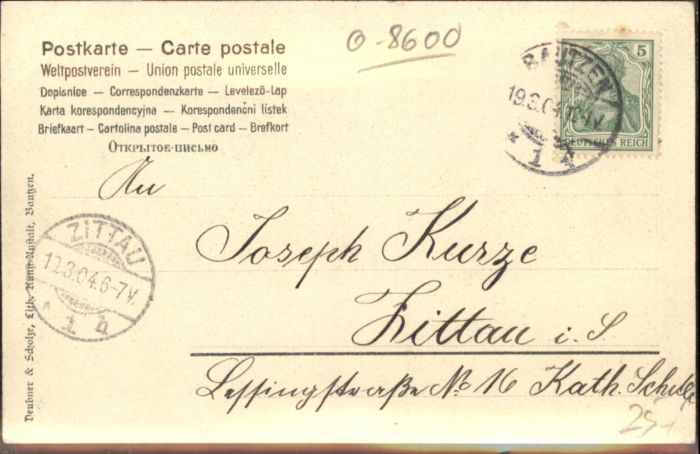 Postkarte — Carte postale
Weltpostverein — Union postale universelle
Dopisnice — Correspondenzkarte — Levelezö-Lap
Karta korespondencyjna — Korespondenčni listek
Briefkaart — Cartolina postale — Post card — Brefkort
Открытое-письмо
0-8600
5
DEUTSCHES REICH
BAUTZEN
19.3.04
1 h
An
Joseph Kurze
Zittau i. S
Lessingstraße No 16 Kath. Schule
25,-
ZITTAU
19.3.04.6-7V.
* 1 h
Deubner & Scholze, Lith. Kunst-Anstalt, Bautzen.